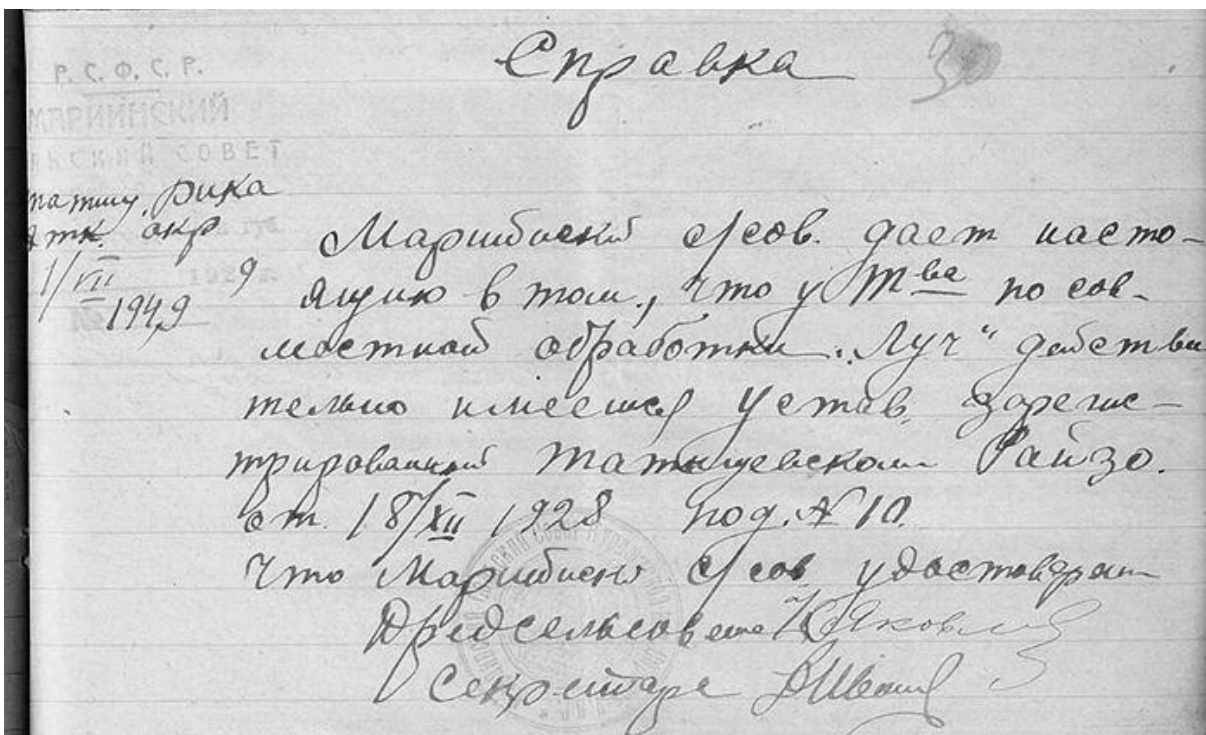 Справка
3
Р. С. Ф. С. Р.
МАРИИНСКИЙ
СОВЕТ
Рика
окр
1/VII
1949
Мариинский с/сов. дает насто-
ящую в том, что у Тва по сов-
местной обработки „Луч“ действи
тельно имеется Устав, зарегис-
трированный Татищевским Райзо.
от 18/XII 1928 под. № 10.
Что Мариинский с/сов. удостоверяет
Предсельсовета Яковлев
Секретарь